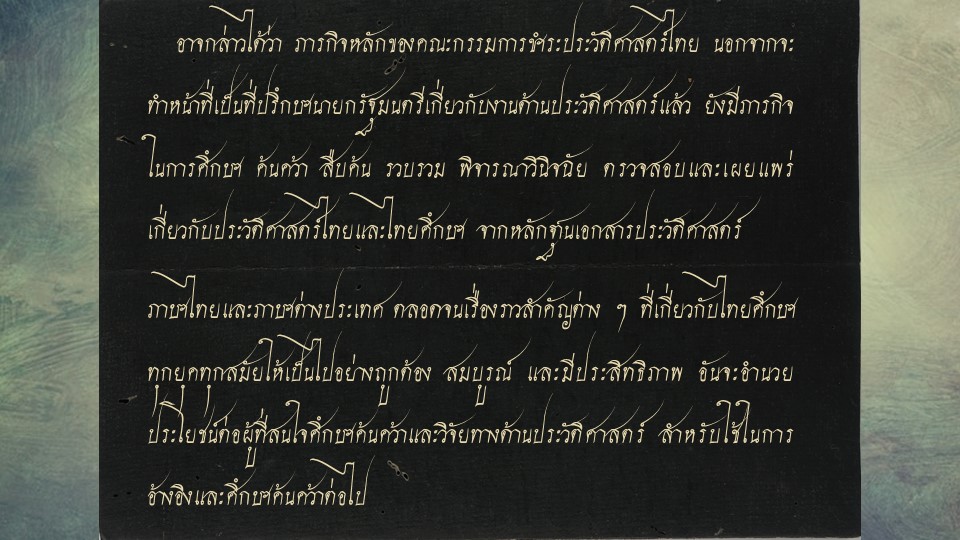 อาจกล่าวได้ว่า ภารกิจหลักของคณะกรรมการชำระประวัติศาสตร์ไทย นอกจากจะ
ทำหน้าที่เป็นที่ปรึกษานายกรัฐมนตรีเกี่ยวกับงานด้านประวัติศาสตร์แล้ว ยังมีภารกิจ
ในการศึกษา ค้นคว้า สืบค้น รวบรวม พิจารณาวินิจฉัย ตรวจสอบและเผยแพร่
เกี่ยวกับประวัติศาสตร์ไทยและไทยศึกษา จากหลักฐานเอกสารประวัติศาสตร์
ภาษาไทยและภาษาต่างประเทศ ตลอดจนเรื่องราวสำคัญต่าง ๆ ที่เกี่ยวกับไทยศึกษา
ทุกยุคทุกสมัยให้เป็นไปอย่างถูกต้อง สมบูรณ์ และมีประสิทธิภาพ อันจะอำนวย
ประโยชน์ต่อผู้ที่สนใจศึกษาค้นคว้าและวิจัยทางด้านประวัติศาสตร์ สำหรับใช้ในการ
อ้างอิงและศึกษาค้นคว้าต่อไป